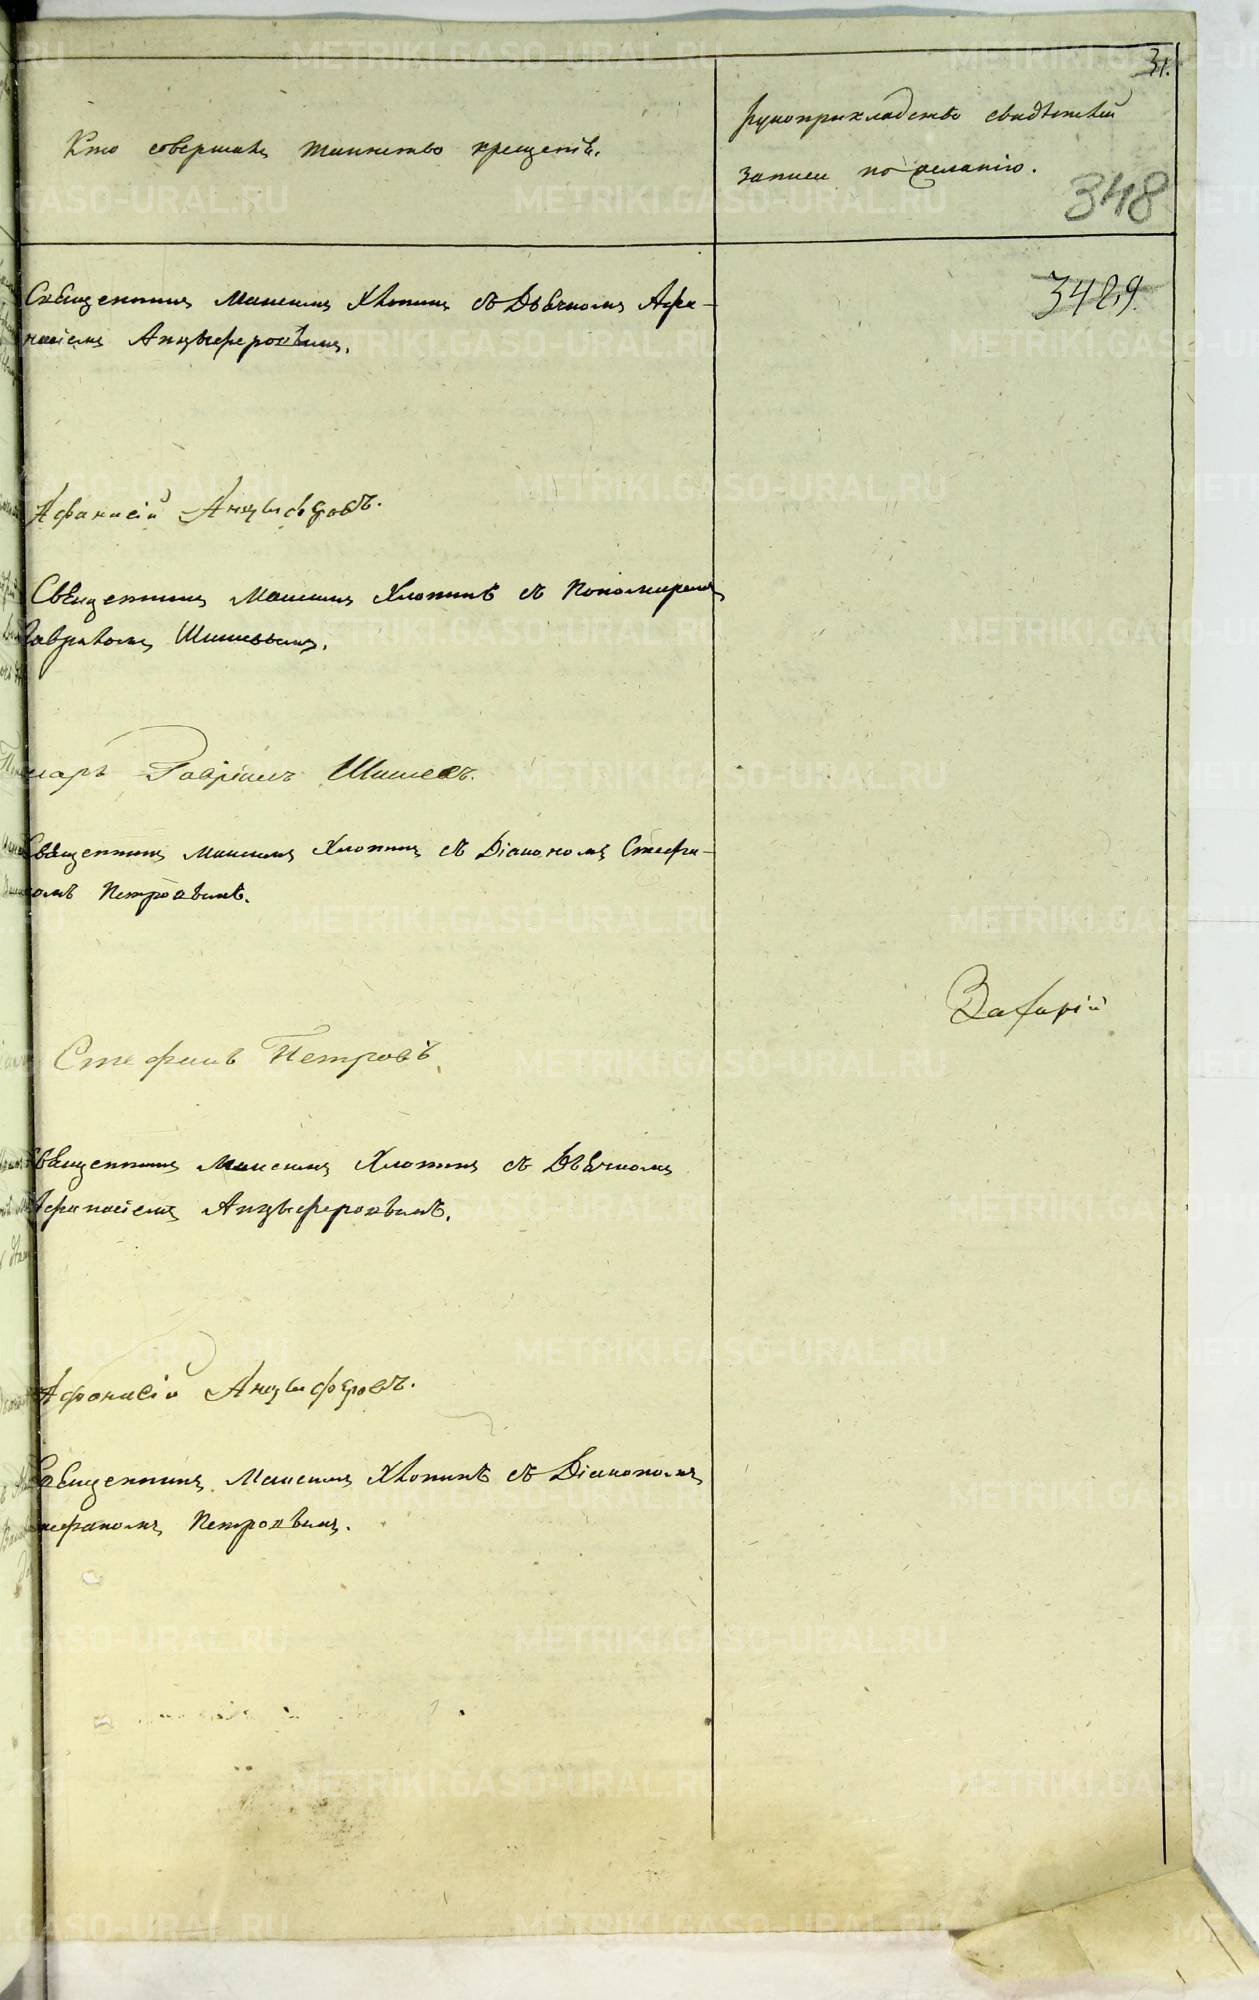 31.
Кто совершалъ таинство крещенія.
рукоприкладство свидѣтелей
записи по желанію.
348
3489.
Священникъ Максимъ Хлопинъ съ Дьячкомъ Афа-
насіемъ Анцыферовымъ.
Афанасій Анцыферовъ.
Священникъ Максимъ Хлопинъ съ Пономаремъ
Гавріиломъ
номарь Гавріилъ
Священникъ Максимъ Хлопинъ съ Діакономъ Стефа-
номъ Петровымъ.
Захарій
Стефанъ Петровъ.
Священникъ Максимъ Хлопинъ съ Дьячкомъ
Афанасіемъ Анцыферовымъ.
Афанасій Анцыферовъ.
Священникъ Максимъ Хлопинъ съ Діакономъ
Стефаномъ Петровымъ.
METRIKI.GASO-URAL.RU